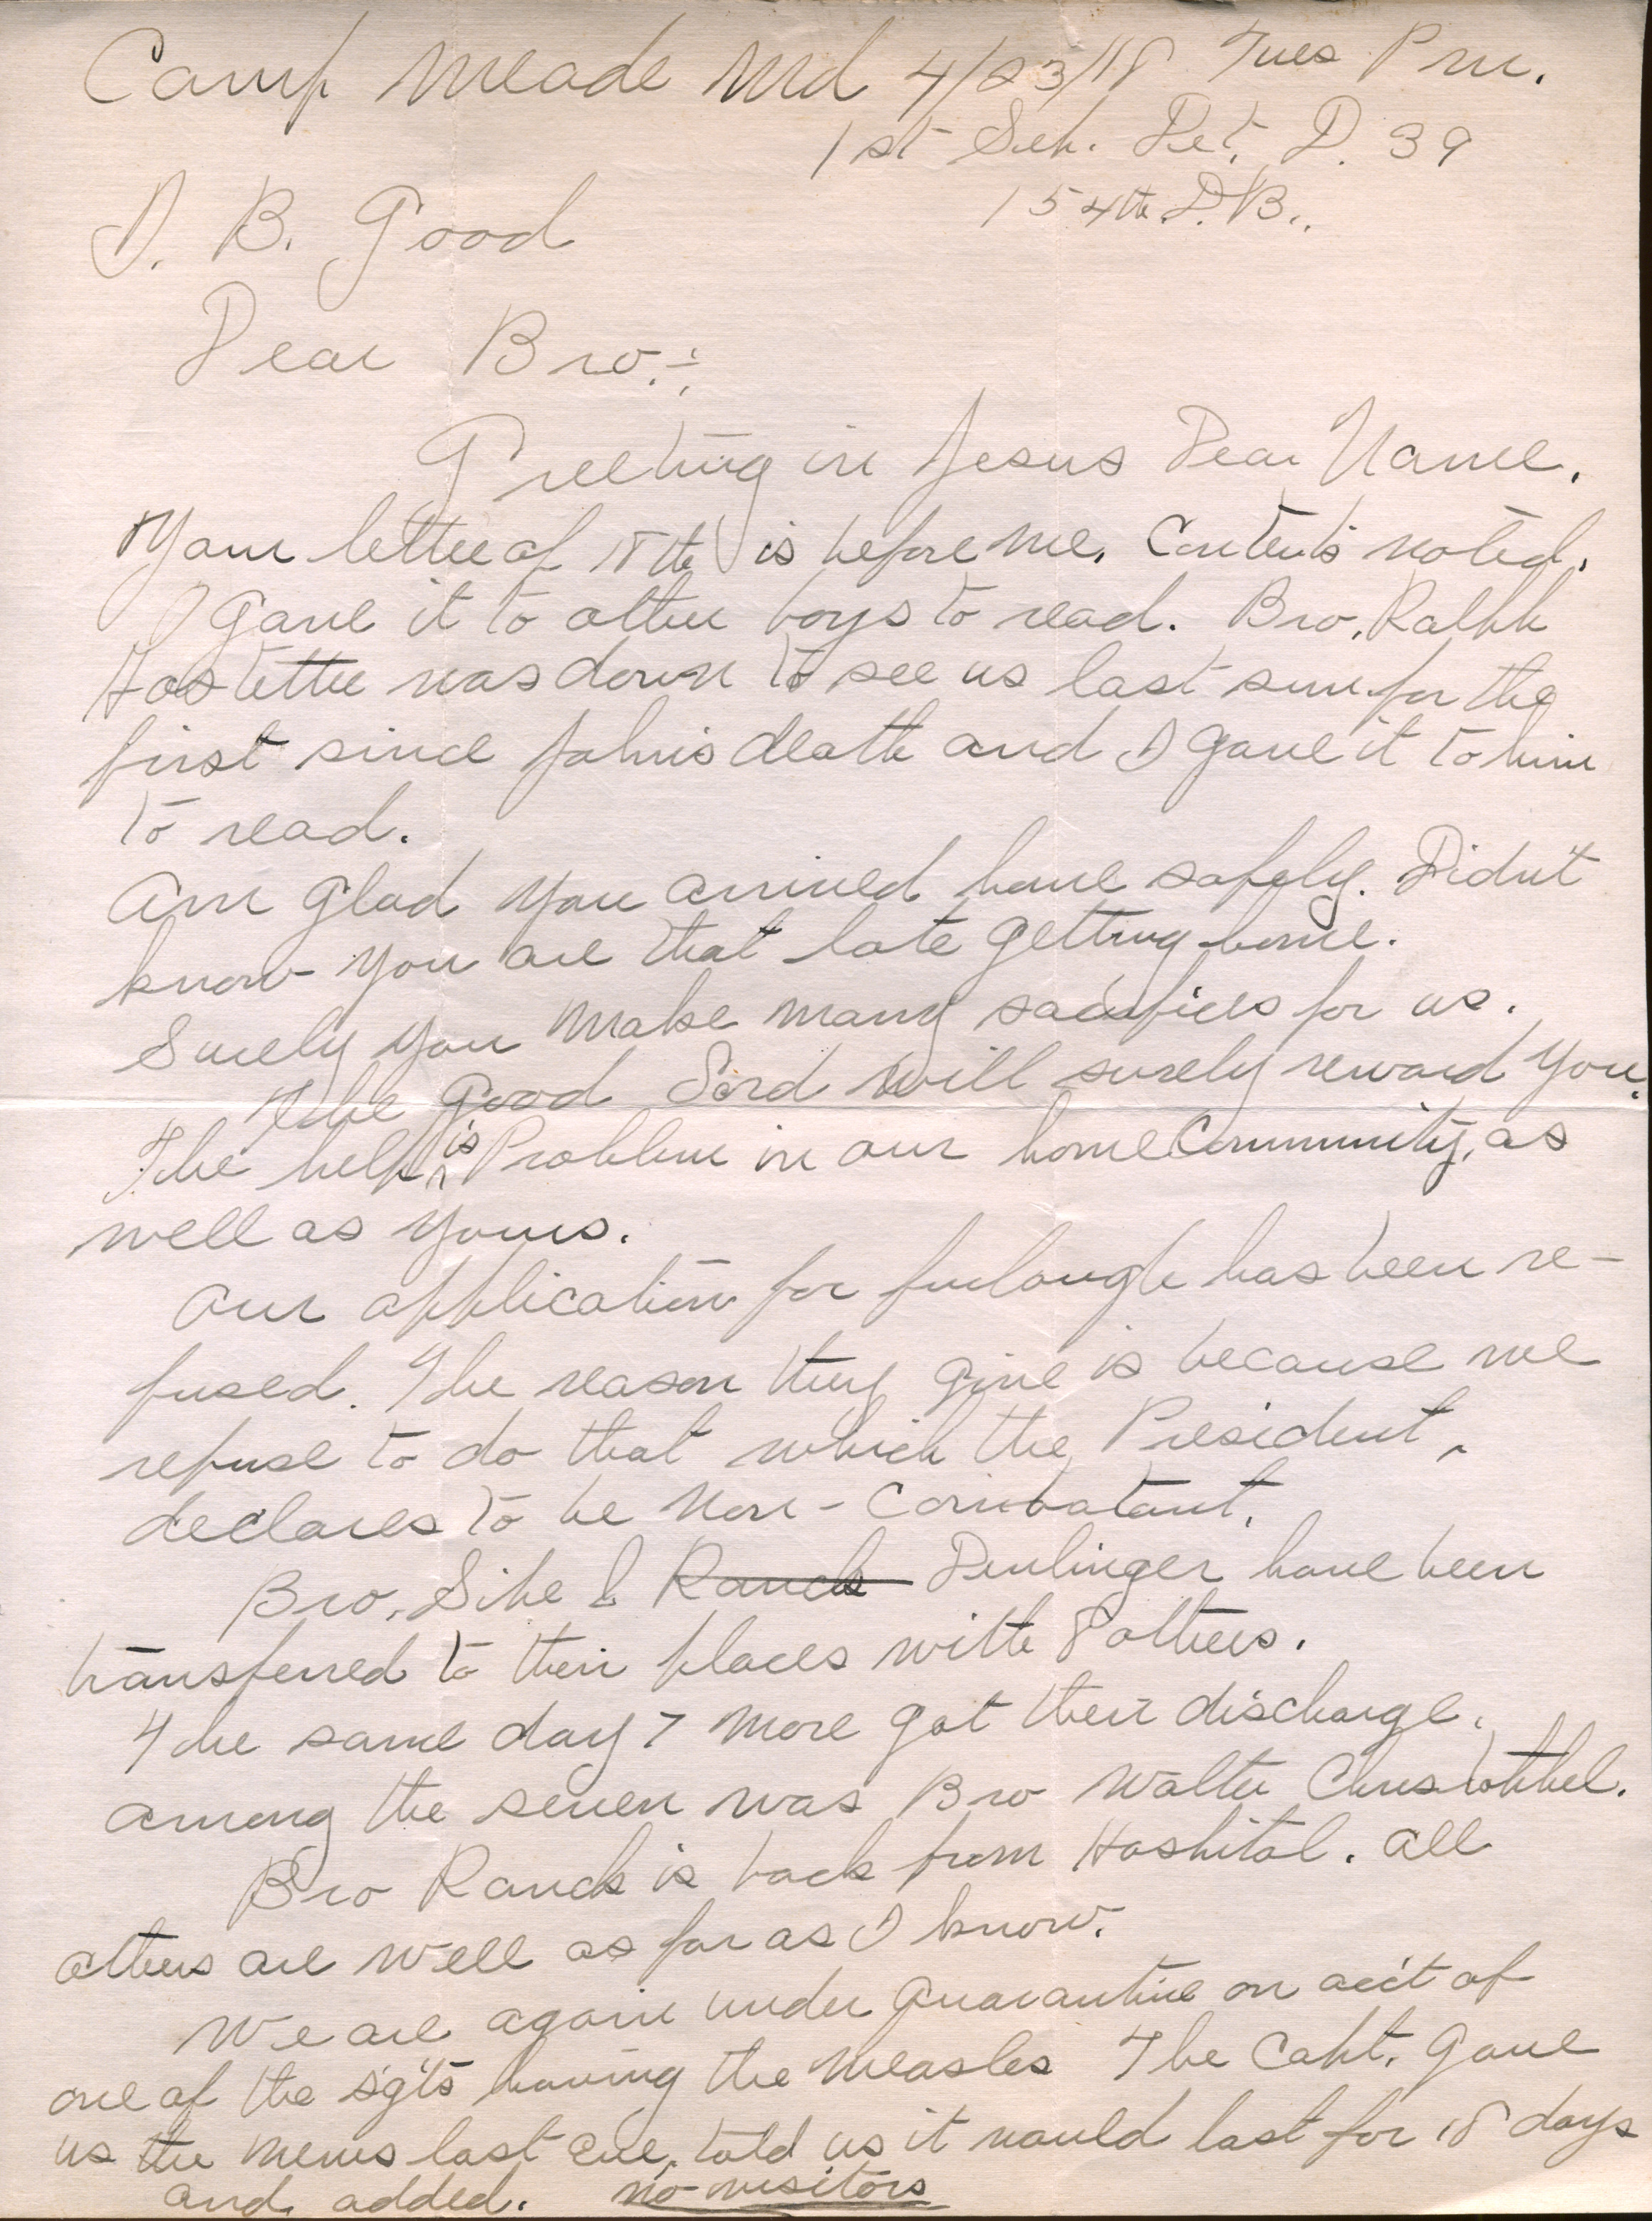 Camp Meade Md 4/23/18 Tues P m.
1st Sch. Det. D. 39
154th D.B..
D. B. Good
Dear Bro.:-
Greeting in Jesus Dear Name.
Your letter of 18th is before me. Contents noted.
I gave it to other boys to read. Bro. Ralph
Hostetter was down to see us last sun. for the
first since John's death and I gave it to him
to read.
Am glad you arrived home safely. Didn't
know you are that late getting home.
Surely you make many sacrifices for us.
The Good Lord will surely reward you.
The help is Problem in our home Community, as
well as yours.
Our application for furlough has been re-
fused. The reason they give is because we
refuse to do that which the President,
declares to be Non-Combatant.
Bro. & Ranck Denlinger have been
transferred to their places with 8 others.
The same day 7 more got their discharge.
among the seven was Bro Walter
Bro Ranck is back from Hospital. All
others are well as far as I know.
We are again under quarantine on acc't of
one of the sg'ts having the measles The Capt. gave
us the news last eve, told us it would last for 18 days
and added. no visitors